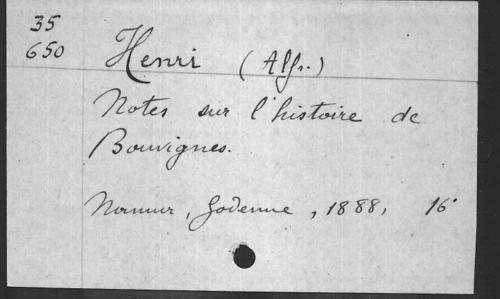 35
650
Henri (Alfr.)
Notes sur l'histoire de
Bouvignes.
Namur, Godenne, 1888, 16°